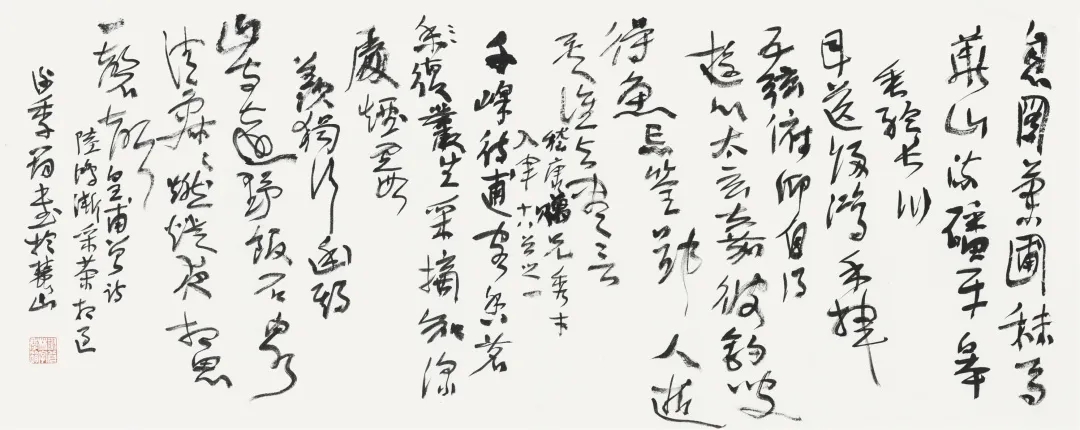 息圖蘭圃秣馬
華山流磻平皋
垂綸長川
目送歸鴻手揮
五弦俯仰自得
遊心太玄嘉彼釣叟
得魚忘筌郢人逝
矣誰與盡言
嵇康贈兄秀才
入軍十八首之一
千峰待逋客香茗
復叢生采摘知深
處煙霞
羨獨行幽期
山寺遠野飯石泉
清寂寂燃燈夜相思
一磬聲
皇甫曾詩
陸鴻漸采茶相遇
季書於山